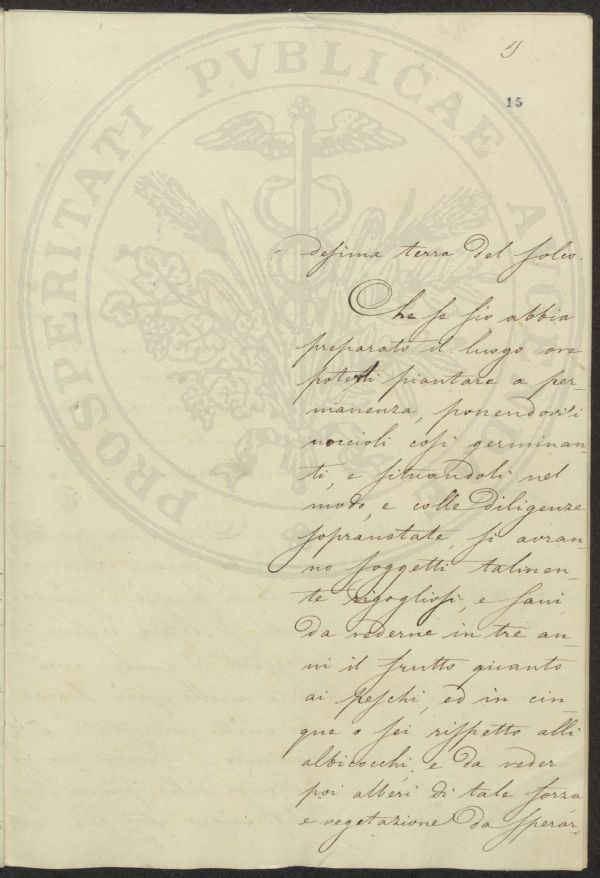 15
desima terra del solco.
Che se sio abbia
preparato il luogo ove
poterli piantare a per-
manenza, ponendovi i
noccioli così germinan-
ti, e situandoli nel
modo, e colle diligenze
sopranotate, si avran-
no soggetti talmen-
te rigogliosi, e sani
da vederne in tre an-
ni il frutto quanto
ai peschi, ed in cin-
que o sei rispetto alli
albicocchi, e da veder
poi alberi di tale forza
e vegetazione da sperar-
PROSPERITATI PVBLICAE AVGENDAE